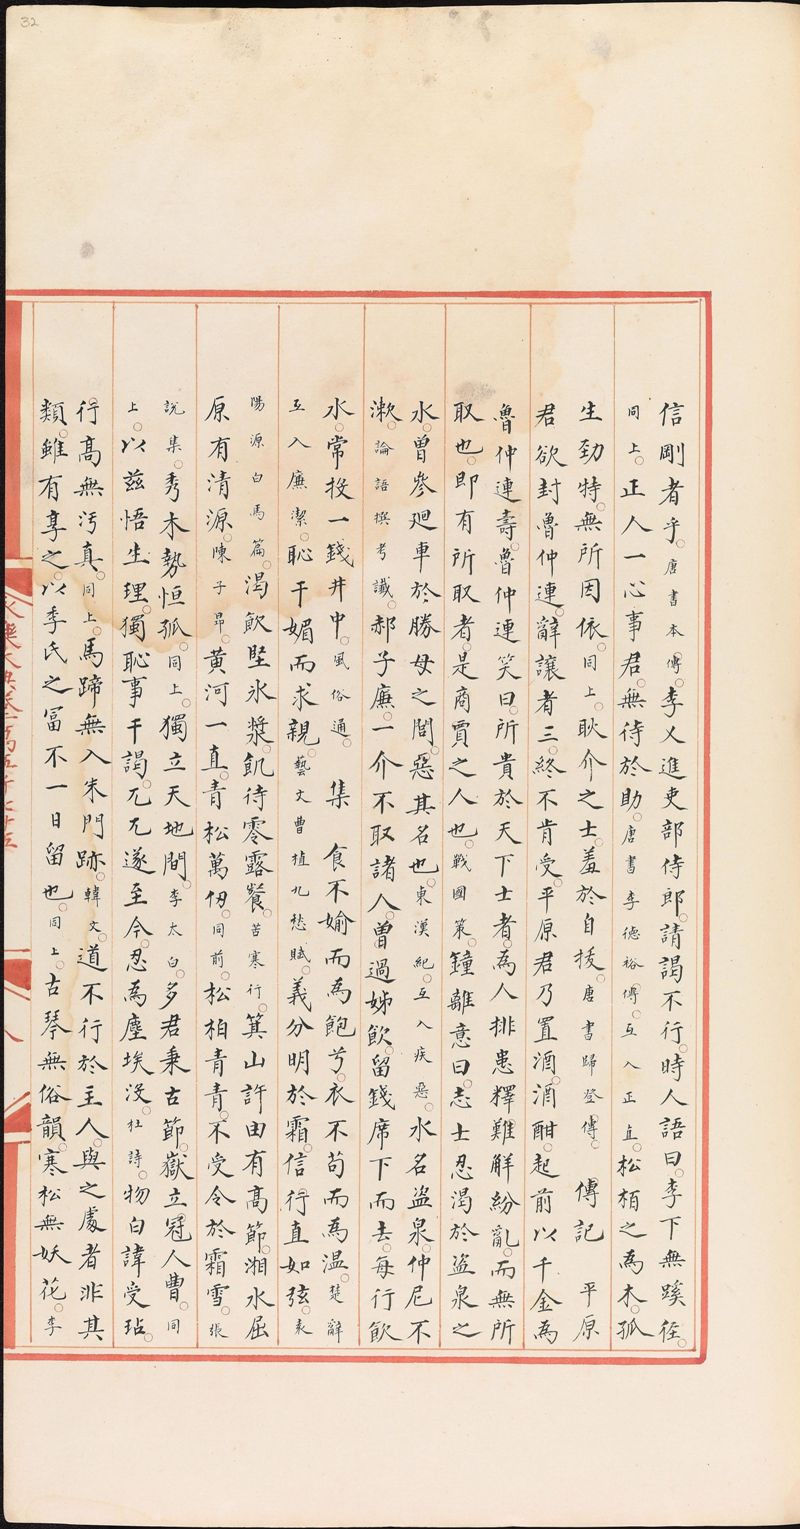 32
信剛者乎。唐書本傳。李乂進吏部侍郎。請謁不行。時人語曰。李下無蹊徑。
同上。正人一心事君。無待於助。唐書李德裕傳。互入正直。松栢之為木。孤
生勁特。無所因依。同上。耿介之士。羞於自拔。唐書歸登傳。 傳記 平原
君欲封魯仲連。辭讓者三。終不肯受。平原君乃置酒。酒酣。起前以千金為
魯仲連壽。魯仲連笑曰。所貴於天下士者。為人排患釋難解紛亂。而無所
取也。即有所取者。是商賈之人也。戰國策。鐘離意曰。志士忍渴於盜泉之
水。曾參廻車於勝母之閭。惡其名也。東漢紀。互入疾惡。水名盜泉。仲尼不
漱。論語撰考讖。郝子廉。一介不取諸人。曾過姊飲。留錢席下而去。每行飲
水。常投一錢井中。風俗通。 集 食不媮而為飽兮。衣不苟而為溫。楚辭
互入廉潔。恥干媚而求親。藝文曹植九愁賦。義分明於霜。信行直如弦。袁
陽源白馬篇。渴飲堅氷漿。飢待零露餐。苦寒行。箕山許由有高節。湘水屈
原有清源。陳子昂。黃河一直。青松萬仞。同前。松柏青青。不受令於霜雪。張
說集。秀木勢恒孤。同上。獨立天地間。李太白。多君秉古節。嶽立冠人曹。同
上。以茲悟生理。獨恥事干謁。兀兀遂至今。忍為塵埃沒。杜詩。物白諱受玷。
行高無汚真。同上。馬蹄無入朱門跡。韓文。道不行於主人。與之處者非其
類。雖有享之。以季氏之冨不一日留也。同上。古琴無俗韻。寒松無妖花。李